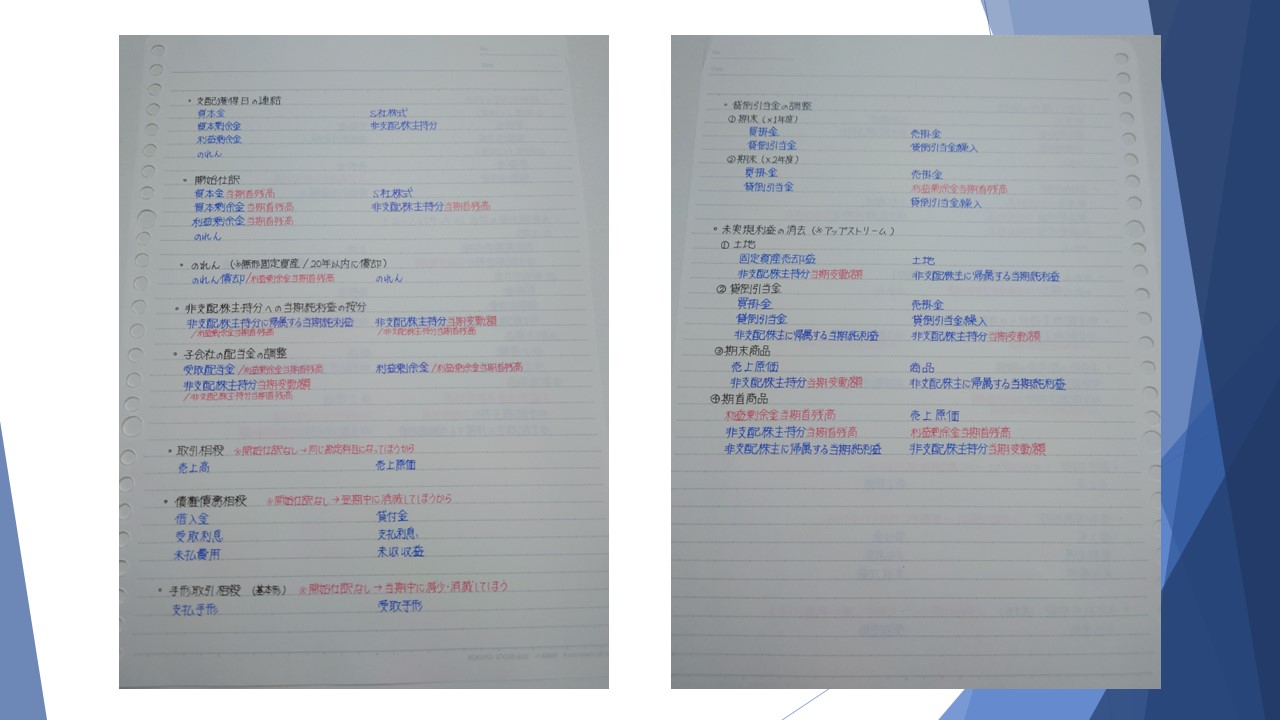 ・支配獲得日の連結
資本金 S社株式
資本剰余金 非支配株主持分
利益剰余金
のれん
・開始仕訳
資本金当期首残高 S社株式
資本剰余金当期首残高 非支配株主持分当期首残高
利益剰余金当期首残高
のれん
・のれん (※無形固定資産/20年以内に償却)
のれん償却/利益剰余金当期首残高 のれん
・非支配株主持分への当期純利益の按分
非支配株主持分に帰属する当期純利益 非支配株主持分当期変動額
/利益剰余金当期首残高 /非支配株主持分当期首残高
・子会社の配当金の調整
受取配当金/利益剰余金当期首残高 利益剰余金/利益剰余金当期首残高
非支配株主持分当期変動額
/非支配株主持分当期首残高
・取引相殺 ※開始仕訳なし→同じ勘定科目になってしまうから
売上高 売上原価
・債権債務相殺 ※開始仕訳なし→翌期中に消滅してしまうから
借入金 貸付金
受取利息 支払利息
未払費用 未収収益
・手形取引相殺 (基本形) ※開始仕訳なし→当期中に減少・消滅してしまう
支払手形 受取手形
・貸倒引当金の調整
①期末(x1年度)
買掛金 売掛金
貸倒引当金 貸倒引当金繰入
②期末(x2年度)
買掛金 売掛金
貸倒引当金 利益剰余金当期首残高
貸倒引当金繰入
・未実現利益の消去 (※アップストリーム)
①土地
固定資産売却益 土地
非支配株主持分当期変動額 非支配株主に帰属する当期純利益
②貸倒引当金
買掛金 売掛金
貸倒引当金 貸倒引当金繰入
非支配株主に帰属する当期純利益 非支配株主持分当期変動額
③期末商品
売上原価 商品
非支配株主持分当期変動額 非支配株主に帰属する当期純利益
④期首商品
利益剰余金当期首残高 売上原価
非支配株主持分当期首残高 利益剰余金当期首残高
非支配株主に帰属する当期純利益 非支配株主持分当期変動額